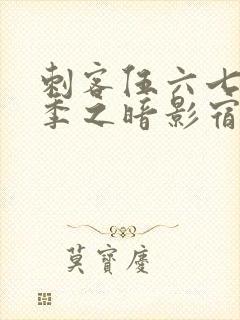 刺客伍六七
季之暗影宿
莫寶慶